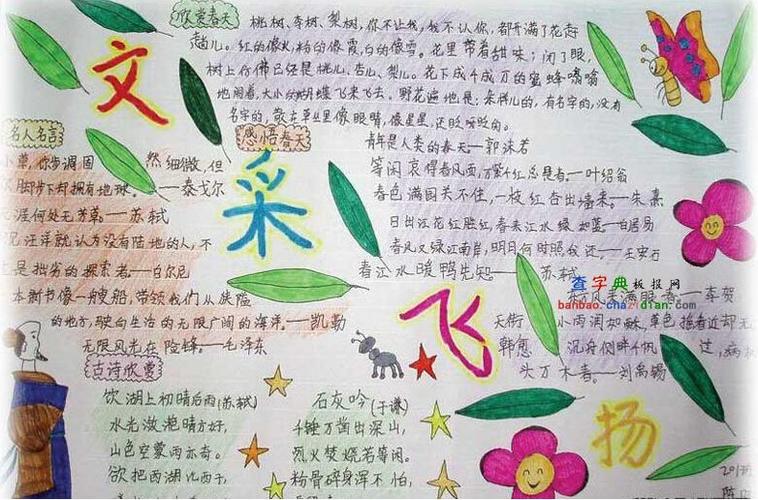 欣赏春天
桃树、李树、梨树，你不让我，我不认你，都开满了花赶
趟儿。红的像火，粉的像霞，白的像雪。花里带着甜味；闭了眼，
树上仿佛已经是桃儿、杏儿、梨儿。花下成千成万的蜜蜂嗡嗡
地闹着，大小的蝴蝶飞来飞去。野花遍地是：杂样儿的，有名字的，没有
名字的，散在草丛里像眼睛，像星星，还眨呀眨的。
文采飞扬
名人名言
小草，你步调固 然细微，但
脚步下却拥有地球。——泰戈尔
涯何处无芳草。——苏轼
见汪洋就认为没有陆地的人，不
是拙劣的探索者——白尔尼
本新书像一艘船，带领我们从狭险
的地方，驶向生活的无限广阔的海洋。——凯勒
无限风光在险锋。——毛泽东
感悟春天
青年是人类的春天——郭沫若
等闲衰得春风面，万紫千红总是春。——叶绍翁
春色满园关不住，一枝红杏出墙来。——朱熹
日出江花红胜红，春来江水绿如蓝——白居易
春风又绿江南岸，明月何时照我还。——王安石
春江水暖鸭先知——苏轼
查字典板报网
banbao.chazidian.com
风来满眼春。——李贺
天街 小雨润如酥，草色搖看近却无
韩愈 沉舟侧畔千帆 过，病
头万木春。——刘禹锡
古诗欣赏
饮湖上初晴后雨（苏轼）
水光潋滟晴方好，
山色空蒙雨亦奇。
欲把西湖比西子，
石灰吟（于谦）
千锤万凿出深山，
烈火焚烧若等闲。
粉骨碎身浑不怕，